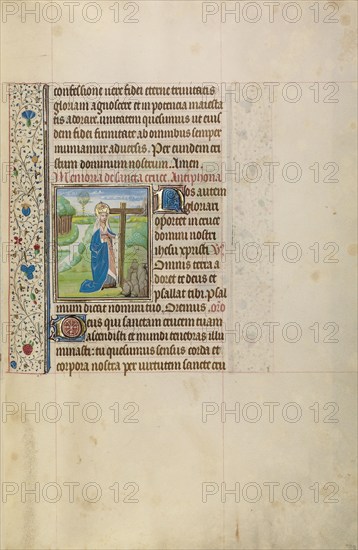 confessione vere fidei eterne trinitatis
gloriam agnoscere et in potencia maiesta
tis adorare unitatem quesumus ut eius
dem fidei firmitate ab omnibus semper
muniamur adversis. Per eundem cri
stum dominum nostrum. Amen.
Memoria de sancta cruce Antiphona
Nos autem
gloriari
oportet in cruce
domini nostri
ihesu xpristi V
Omnis terra a
doret te deus et
psallat tibi. psal
mum dicat nomini tuo. Oremus. oro
Deus qui sanctam crucem tuam
ascendisti et mundi tenebras illu
minasti: tu quesumus sensus corda et
corpora nostra per virtutem sancte cru
PHOTO12